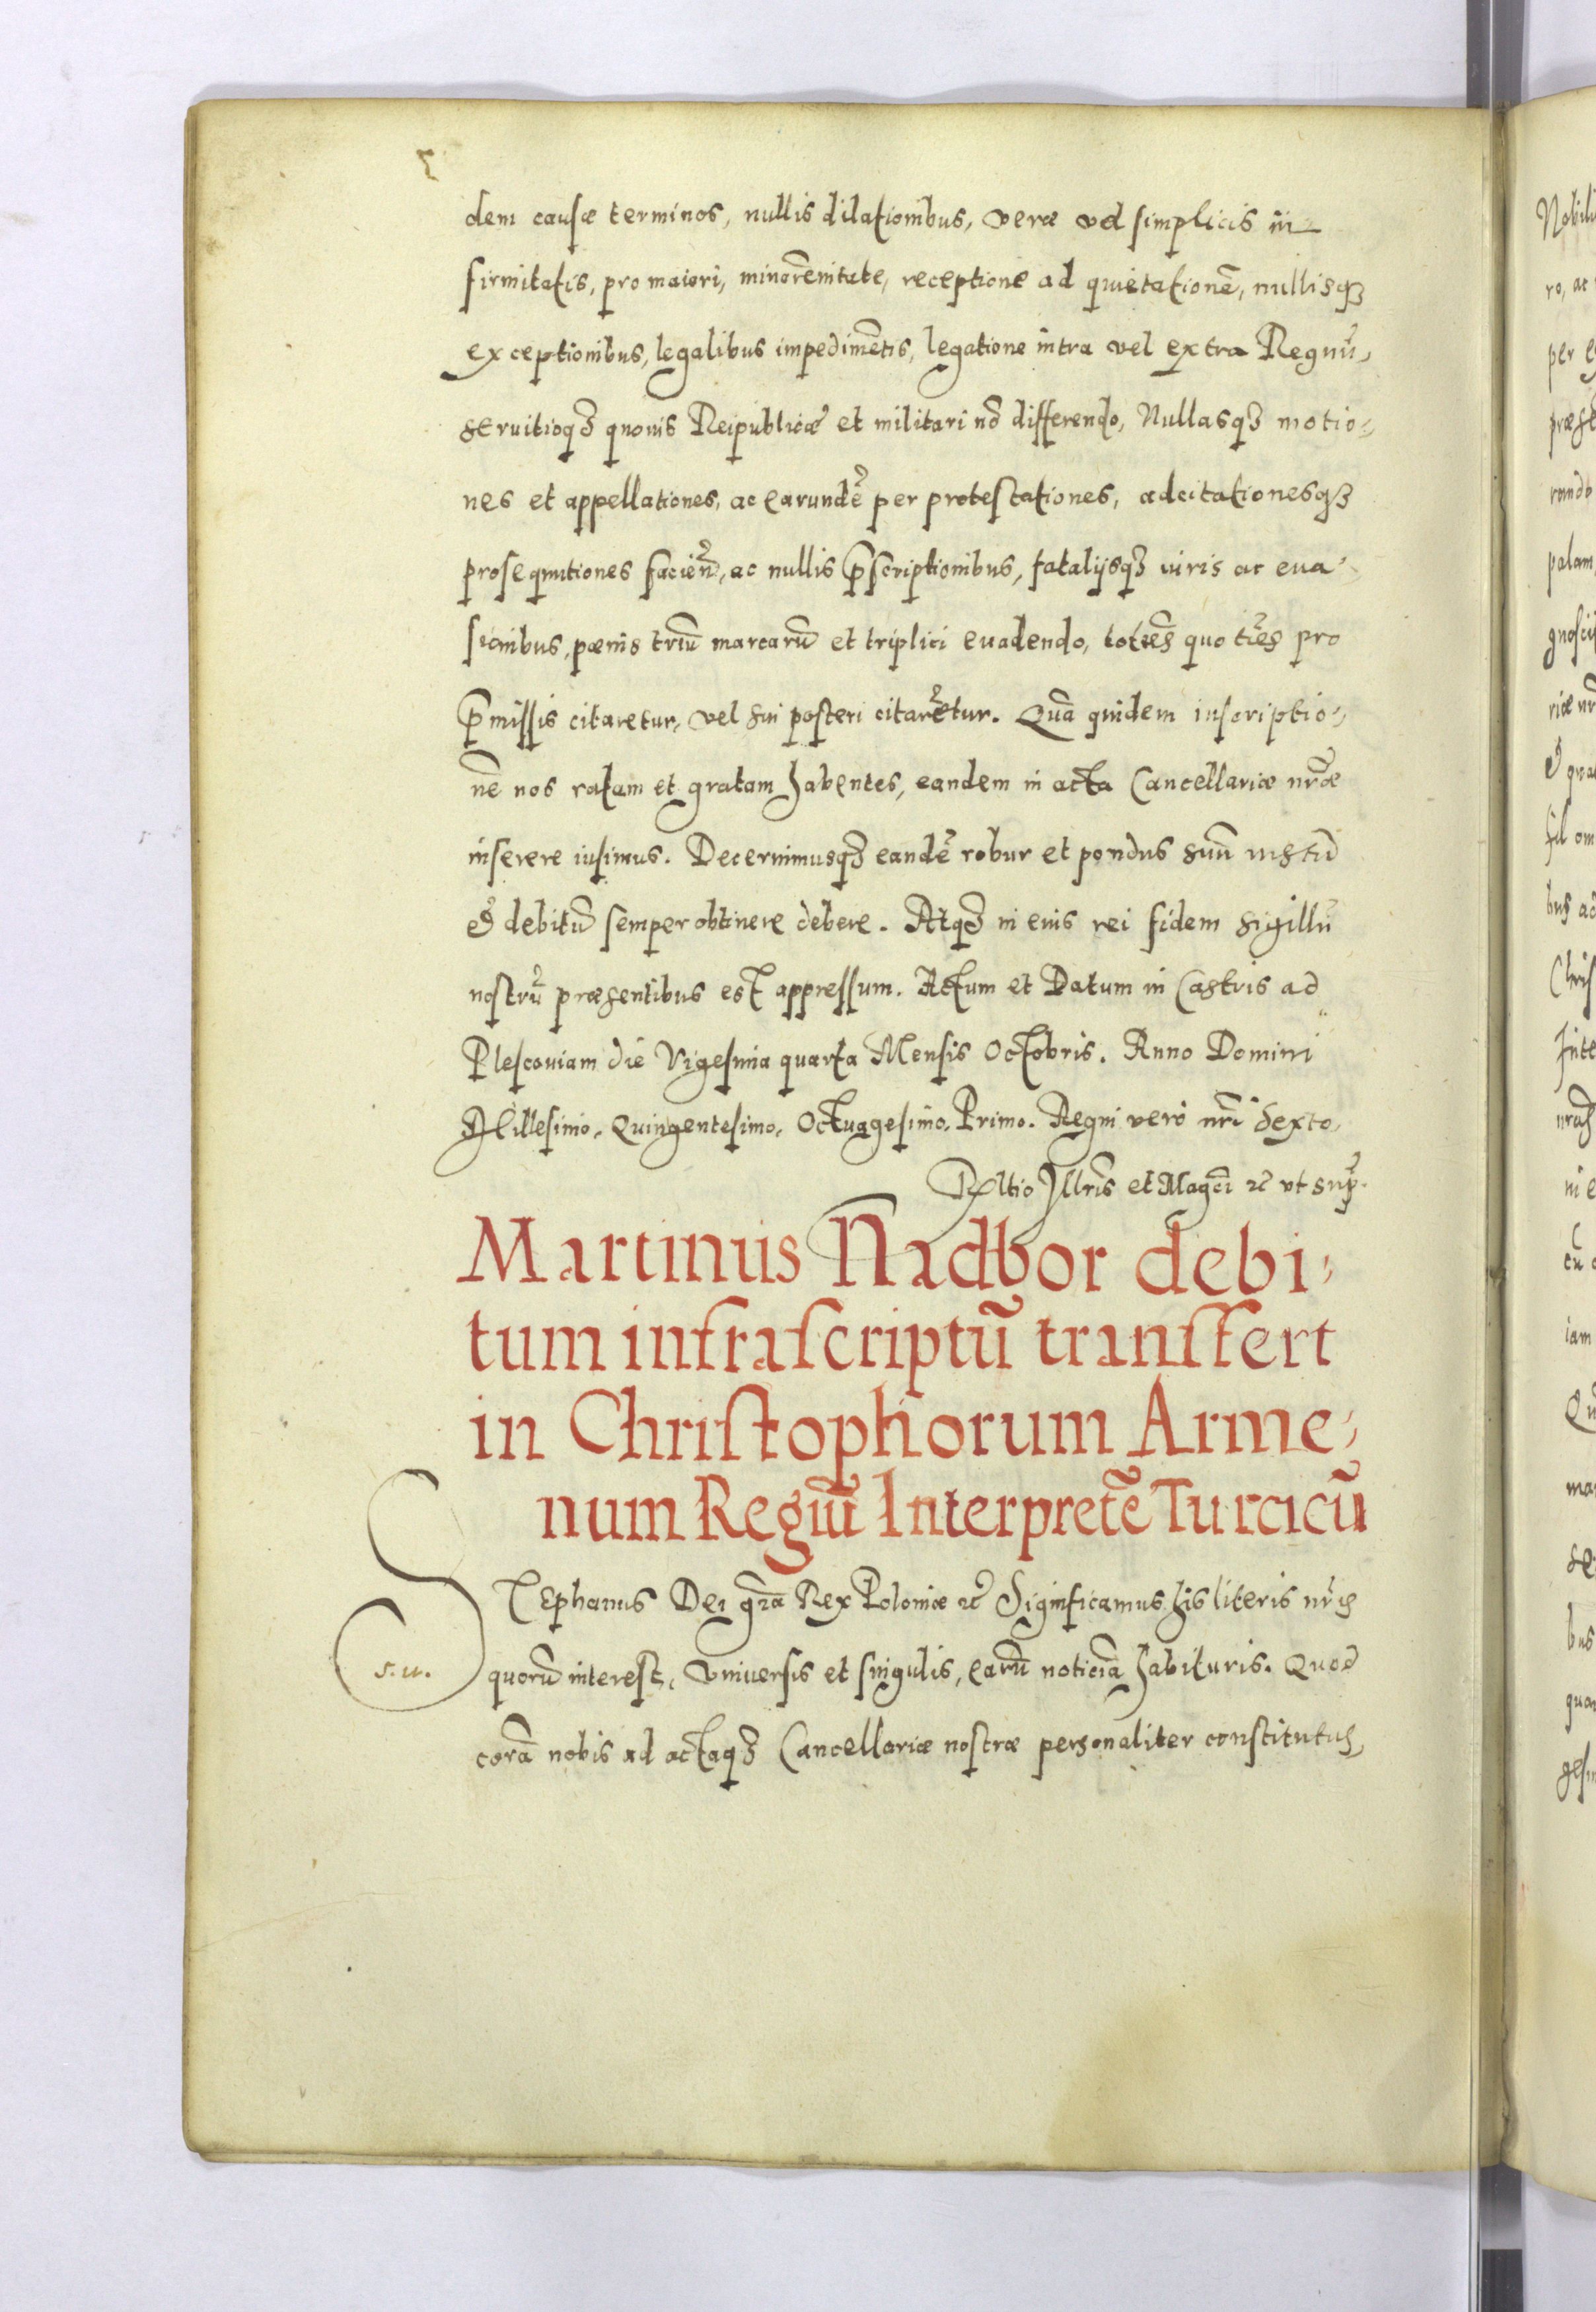 dem causæ terminos, nullis dilationibus, veræ vel simplicis in
firmitatis, pro maiori, minorẽnitate, receptione ad quietationẽ, nullisqꝫ
exceptionibus, legalibus impedimẽtis, legatione intra vel extra Regnũ,
servitioqꝫ quouis Reipublicæ et militari nõ differendo, Nullasqꝫ motio⸗
nes et appellationes, ac earundẽ per protestationes, adcitationesqꝫ
prosequutiones facieñ, ac nullis p̃scriptionibus, fatalijsqꝫ iuris ac eua⸗
sionibus, pœnis triũ marcarũ et triplici euadendo, totiẽs quotiẽs pro
p̃missis citaretur, vel sui posteri citarẽtur. Quã quidem inscriptio⸗
nẽ nos ratam et gratam habentes, eandem in acta Cancellariæ nr̃æ
inserere iusimus. Decernimusqꝫ eandẽ robur et pondus suũ iustũ
& debitũ semper obtinere debere. Atqꝫ in eius rei fidem sigillũ
nostrũ præsentibus est appressum. Actum et Datum in Castris ad
Plescouiam die Vigesima quarta Mensis Octobris. Anno Domini
Millesimo, Quingentesimo, Octuagesimo, Primo. Regni vero nr̃i Sexto,
Rltio Jllris̃ et Magc̃i ꝛc̃ vt sup̃.
Martinus Nadbor debi⸗
tum infraſcriptũ tranſfert
in Chriſtophorum Arme⸗
num Regiũ Interpretẽ Turcicũ
STEphanus Dei gr̃a Rex Poloniæ ꝛc̃ Significamus his literis nr̃is
s.u.
quorũ interest, Vniuersis et singulis, earũ noticiã habituris. Quod
corã nobis ad actaqꝫ Cancellariæ nostræ personaliter constitutus,